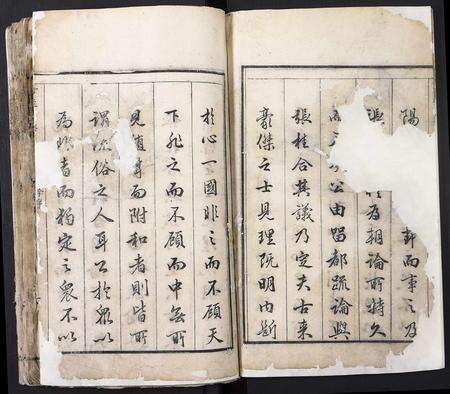 陽而事之乃
張為朝論所持久
公由留都疏論與
張桂合其議乃定夫古來
豪傑之士見理既明內斷
於心一國非之而不顧天
下非之而不顧而中無所
見隨聲而附和者則皆所
謂流俗之人耳公於衆以
為非者而獨定之衆不以